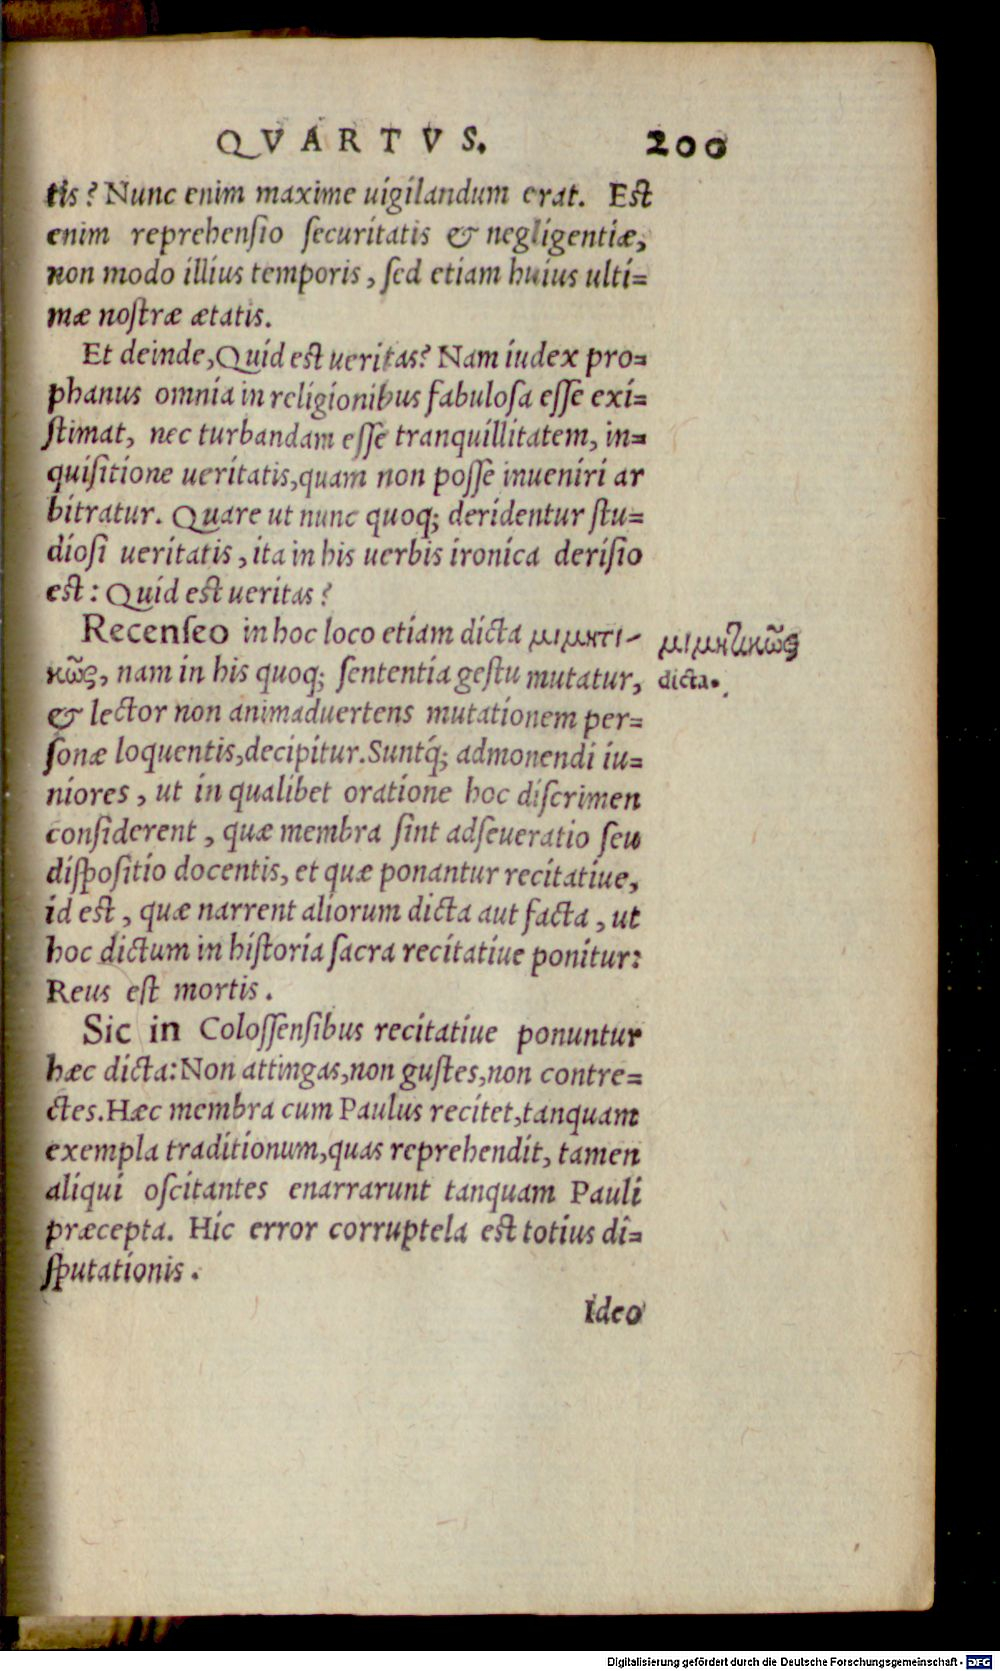 QVARTVS. 200
tis? Nunc enim maxime uigilandum erat. Est
enim reprehenſio ſecuritatis & negligentiæ,
non modo illius temporis, ſed etiam huius ulti=
mæ noſtræ ætatis.
Et deinde, Quid eſt ueritas? Nam iudex pro=
phanus omnia in religionibus fabuloſa eſſe exi=
ſtimat, nec turbandam eſſe tranquillitatem, in=
quiſitione ueritatis, quam non poſſe inueniri ar
bitratur. Quare ut nunc quoq; deridentur ſtu=
dioſi ueritatis, ita in his uerbis ironica deriſio
eſt: Quid eſt ueritas?
Recenſeo in hoc loco etiam dicta μιμητι-
κῶς, nam in his quoq; ſententia geſtu mutatur,
& lector non animaduertens mutationem per=
ſonæ loquentis, decipitur. Suntq́; admonendi iu=
niores, ut in qualibet oratione hoc diſcrimen
conſiderent, quæ membra ſint adſeueratio ſeu
diſpoſitio docentis, et quæ ponantur recitatiue,
id eſt, quæ narrent aliorum dicta aut facta, ut
hoc dictum in hiſtoria ſacra recitatiue ponitur:
Reus eſt mortis.
Sic in Coloſſenſibus recitatiue ponuntur
hæc dicta: Non attingas, non guſtes, non contre=
ctes. Hæc membra cum Paulus recitet, tanquam
exempla traditionum, quas reprehendit, tamen
aliqui oſcitantes enarrarunt tanquam Pauli
præcepta. Hic error corruptela eſt totius di=
ſputationis.
Ideo
μιμητικῶς
dicta.
Digitalisierung gefördert durch die Deutsche Forschungsgemeinschaft - DFG